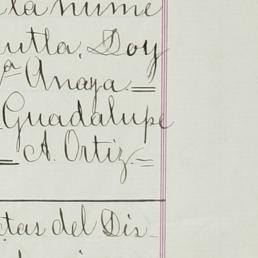 la nume
utla. Doy
a Anaya.=
Guadalupe
= A. Ortiz.=
ctas del Dis-